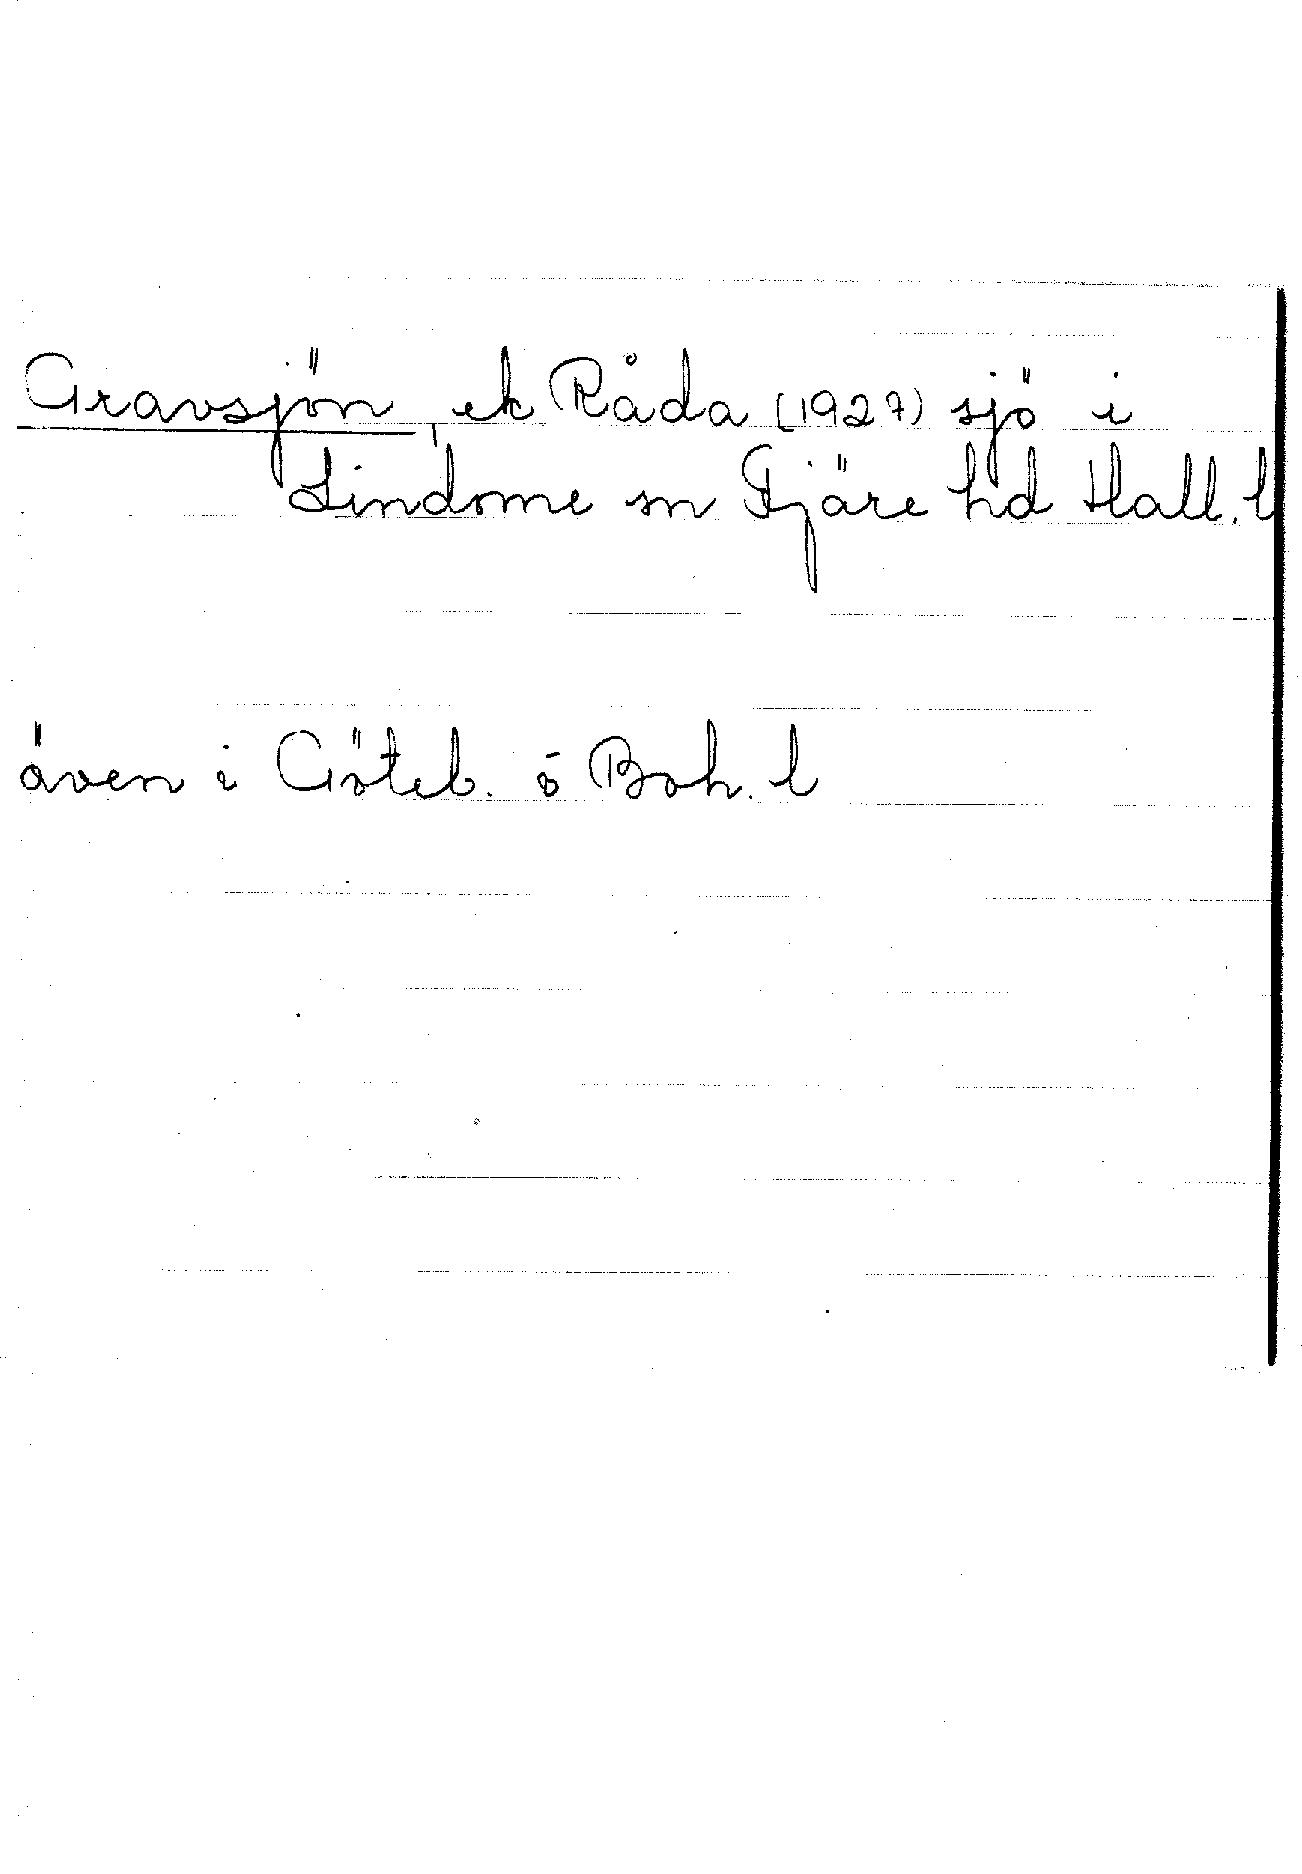 Gravsjön, ek Råda (1927) sjö i
Lindome sn Fjäre hd Hall. l
även i Göteb. o Boh. l